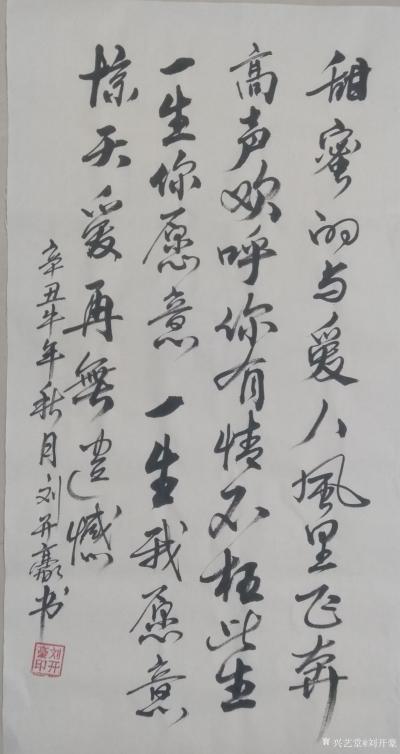 甜蜜的与爱人风里飞奔
高声欢呼你有情不枉此生
一生你愿意 一生我愿意
惊天爱再無遗憾
辛丑牛年秋月刘开豪书
刘开豪印
兴艺堂@刘开豪